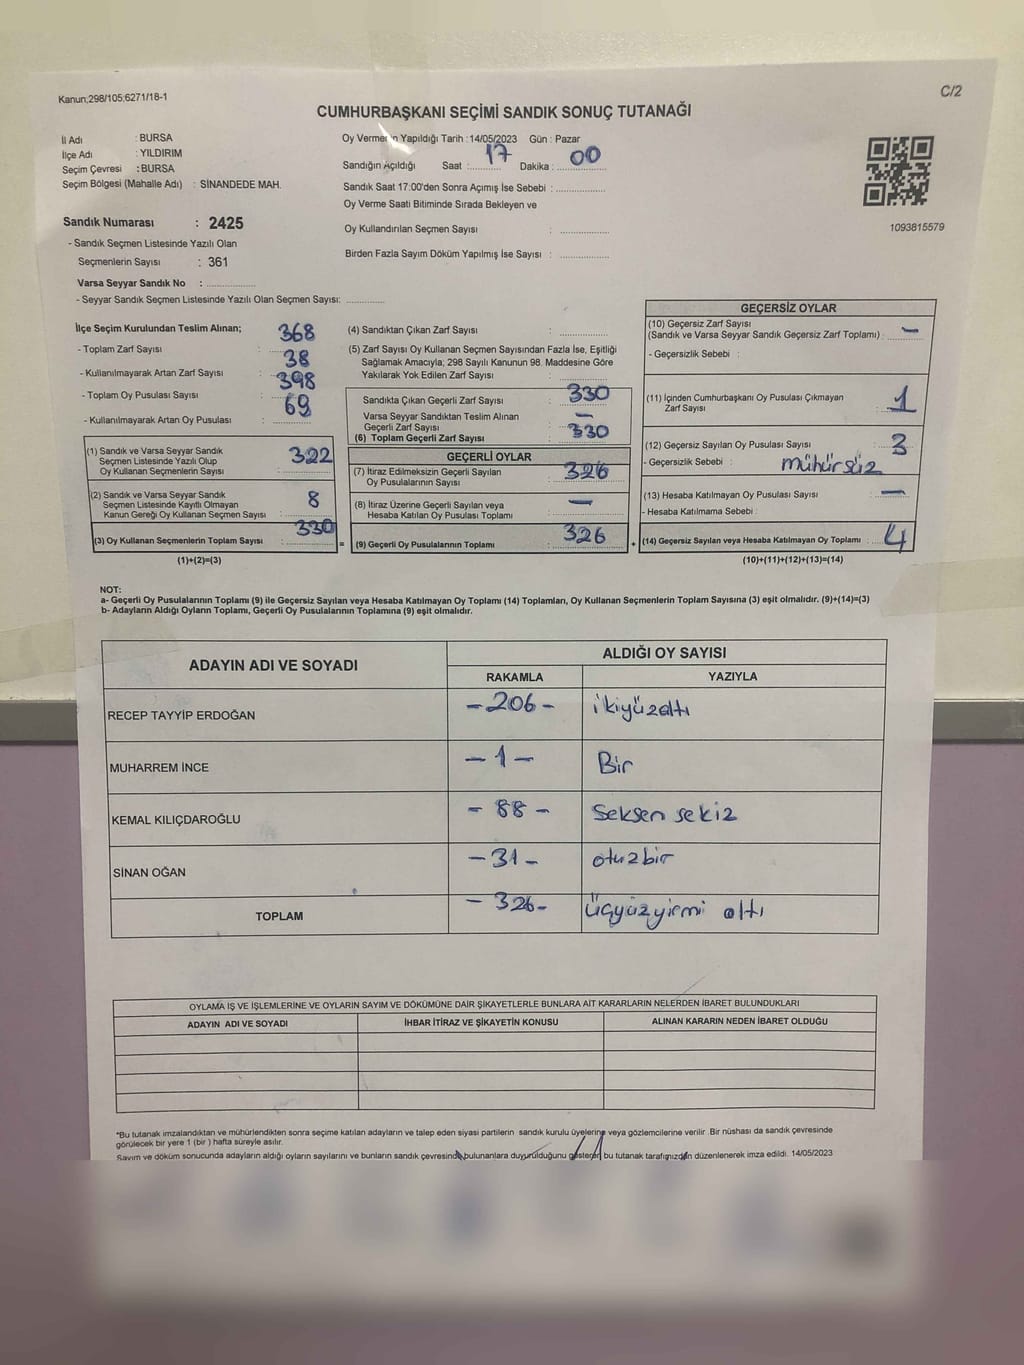 Kanun;298/105;6271/18-1
C/2
CUMHURBAŞKANI SEÇİMİ SANDIK SONUÇ TUTANAĞI
İl Adı : BURSA
İlçe Adı : YILDIRIM
Seçim Çevresi : BURSA
Seçim Bölgesi (Mahalle Adı) : SİNANDEDE MAH.
Sandık Numarası : 2425
- Sandık Seçmen Listesinde Yazılı Olan
Seçmenlerin Sayısı : 361
Varsa Seyyar Sandık No : ................
- Seyyar Sandık Seçmen Listesinde Yazılı Olan Seçmen Sayısı: ............
Oy Vermenin Yapıldığı Tarih :14/05/2023 Gün : Pazar
Sandığın Açıldığı Saat : 17 Dakika : 00
Sandık Saat 17:00'den Sonra Açımış İse Sebebi : ................
Oy Verme Saati Bitiminde Sırada Bekleyen ve
Oy Kullandırılan Seçmen Sayısı : ................
Birden Fazla Sayım Döküm Yapılmış İse Sayısı : ................
1093815579
İlçe Seçim Kurulundan Teslim Alınan;
- Toplam Zarf Sayısı : 368
- Kullanılmayarak Artan Zarf Sayısı : 38
- Toplam Oy Pusulası Sayısı : 398
- Kullanılmayarak Artan Oy Pusulası : 69
(1) Sandık ve Varsa Seyyar Sandık
Seçmen Listesinde Yazılı Olup
Oy Kullanan Seçmenlerin Sayısı 322
(2) Sandık ve Varsa Seyyar Sandık
Seçmen Listesinde Kayıtlı Olmayan
Kanun Gereği Oy Kullanan Seçmen Sayısı 8
(3) Oy Kullanan Seçmenlerin Toplam Sayısı 330
(1)+(2)=(3)
(4) Sandıktan Çıkan Zarf Sayısı : ................
(5) Zarf Sayısı Oy Kullanan Seçmen Sayısından Fazla İse, Eşitliği
Sağlamak Amacıyla; 298 Sayılı Kanunun 98. Maddesine Göre
Yakılarak Yok Edilen Zarf Sayısı : ................
Sandıkta Çıkan Geçerli Zarf Sayısı : 330
Varsa Seyyar Sandıktan Teslim Alınan
Geçerli Zarf Sayısı : —
(6) Toplam Geçerli Zarf Sayısı : 330
GEÇERLİ OYLAR
(7) İtiraz Edilmeksizin Geçerli Sayılan
Oy Pusulalarının Sayısı : 326
(8) İtiraz Üzerine Geçerli Sayılan veya
Hesaba Katılan Oy Pusulası Toplamı : —
= (9) Geçerli Oy Pusulalarının Toplamı : 326
GEÇERSİZ OYLAR
(10) Geçersiz Zarf Sayısı
(Sandık ve Varsa Seyyar Sandık Geçersiz Zarf Toplamı) : —
- Geçersizlik Sebebi :
(11) İçinden Cumhurbaşkanı Oy Pusulası Çıkmayan
Zarf Sayısı : 1
(12) Geçersiz Sayılan Oy Pusulası Sayısı : 3
- Geçersizlik Sebebi : mühürsüz
(13) Hesaba Katılmayan Oy Pusulası Sayısı : —
- Hesaba Katılmama Sebebi :
+ (14) Geçersiz Sayılan veya Hesaba Katılmayan Oy Toplamı : 4
(10)+(11)+(12)+(13)=(14)
NOT:
a- Geçerli Oy Pusulalarının Toplamı (9) ile Geçersiz Sayılan veya Hesaba Katılmayan Oy Toplamı (14) Toplamları, Oy Kullanan Seçmenlerin Toplam Sayısına (3) eşit olmalıdır. (9)+(14)=(3)
b- Adayların Aldığı Oyların Toplamı, Geçerli Oy Pusulalarının Toplamına (9) eşit olmalıdır.
ADAYIN ADI VE SOYADI ALDIĞI OY SAYISI
RAKAMLA YAZIYLA
RECEP TAYYİP ERDOĞAN -206- ikiyüzaltı
MUHARREM İNCE -1- Bir
KEMAL KILIÇDAROĞLU -88- Seksen sekiz
SİNAN OĞAN -31- otuzbir
TOPLAM -326- Üçyüzyirmi altı
OYLAMA İŞ VE İŞLEMLERİNE VE OYLARIN SAYIM VE DÖKÜMÜNE DAİR ŞİKAYETLERLE BUNLARA AİT KARARLARIN NELERDEN İBARET BULUNDUKLARI
ADAYIN ADI VE SOYADI İHBAR İTİRAZ VE ŞİKAYETİN KONUSU ALINAN KARARIN NEDEN İBARET OLDUĞU
*Bu tutanak imzalandıktan ve mühürlendikten sonra seçime katılan adayların ve talep eden siyasi partilerin sandık kurulu üyelerine veya gözlemcilerine verilir .Bir nüshası da sandık çevresinde
görülecek bir yere 1 (bir ) hafta süreyle asılır.
Sayım ve döküm sonucunda adayların aldığı oyların sayılarını ve bunların sandık çevresinde bulunanlara duyurulduğunu gösteren bu tutanak tarafımızdan düzenlenerek imza edildi. 14/05/2023